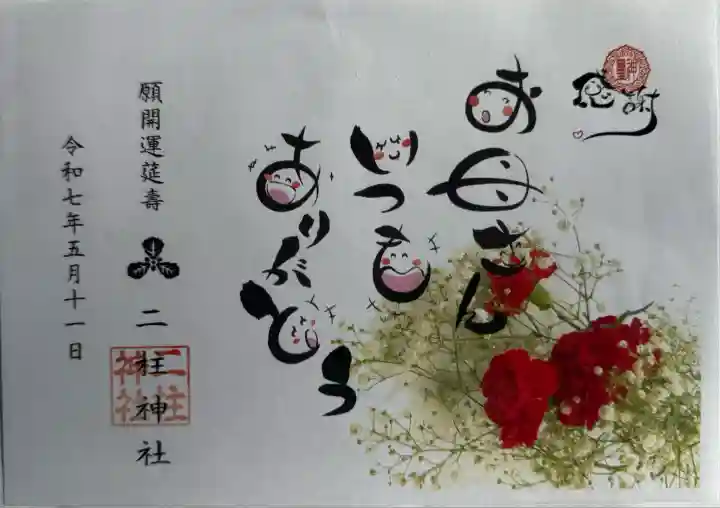 感謝
お母さん
いつも
ありがとう
願開運延壽
二柱神社
二柱
神社
令和七年五月十一日